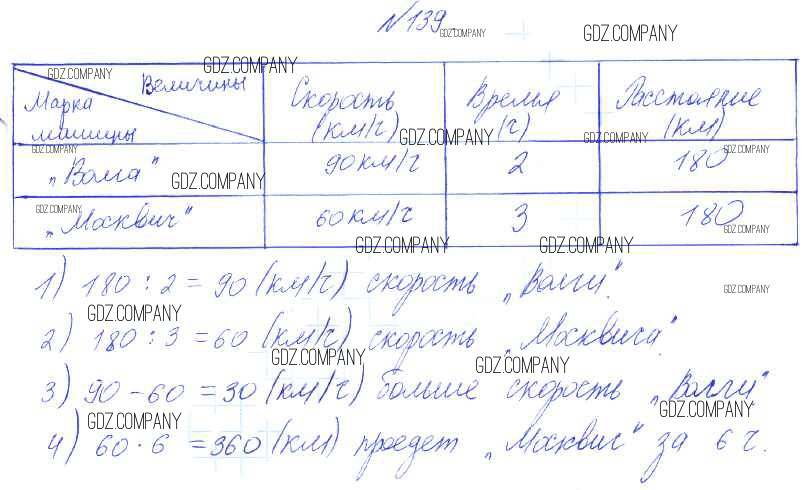 №139
GDZ.COMPANY
GDZ.COMPANY
GDZ.COMPANY
GDZ.COMPANY
Величины
Марка машины
Скорость (км/ч)
Время (ч)
Расстояние (км)
GDZ.COMPANY
GDZ.COMPANY
GDZ.COMPANY
GDZ.COMPANY
„Волга" 90км/ч 2 180
GDZ.COMPANY
GDZ.COMPANY
„Москвич" 60км/ч 3 180
GDZ.COMPANY
GDZ.COMPANY
GDZ.COMPANY
1) 180 : 2 = 90 (км/ч) скорость „Волги".
GDZ.COMPANY
GDZ.COMPANY
2) 180 : 3 = 60 (км/ч) скорость „Москвича".
GDZ.COMPANY
GDZ.COMPANY
3) 90 - 60 = 30 (км/ч) больше скорость „Волги"
GDZ.COMPANY
GDZ.COMPANY
4) 60 · 6 = 360 (км) проедет „Москвич" за 6 ч.